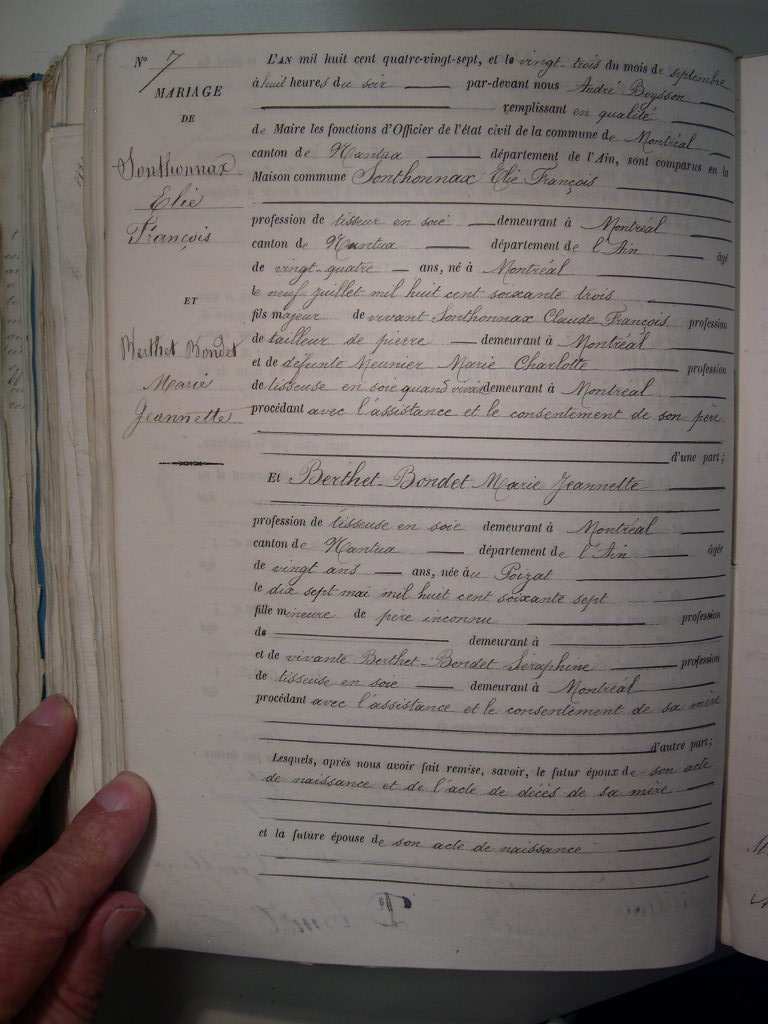 N° 7
MARIAGE
DE
Sonthonnax
Elie
François
ET
Berthet Bondet
Marie
Jeannette
L'AN mil huit cent quatre-vingt-sept, et le vingt-trois du mois de septembre
à huit heures du soir par-devant nous André Beysson
remplissant en qualité
de Maire les fonctions d'Officier de l'état civil de la commune de Montréal
canton de Nantua département de l'Ain, sont comparus en la
Maison commune Sonthonnax Elie François
profession de tisseur en soie demeurant à Montréal
canton de Nantua département de l'Ain âgé
de vingt-quatre ans, né à Montréal
le neuf juillet mil huit cent soixante trois
fils majeur de vivant Sonthonnax Claude François profession
de tailleur de pierre demeurant à Montréal
et de défunte Meunier Marie Charlotte profession
de tisseuse en soie quand vivait demeurant à Montreal
procédant avec l'assistance et le consentement de son père
d'une part;
Et Berthet-Bondet Marie Jeannette
profession de tisseuse en soie demeurant à Montréal
canton de Nantua département de l'Ain âgée
de vingt ans ans, née au Poizat
le dix sept mai mil huit cent soixante sept
fille mineure de père inconnu profession
de demeurant à
et de vivante Berthet-Bondet Séraphine profession
de tisseuse en soie demeurant à Montréal
procédant avec l'assistance et le consentement de sa mère
d'autre part;
Lesquels, après nous avoir fait remise, savoir, le futur époux de son acte
de naissance et de l'acte de décès de sa mère
et la future épouse de son acte de naissance